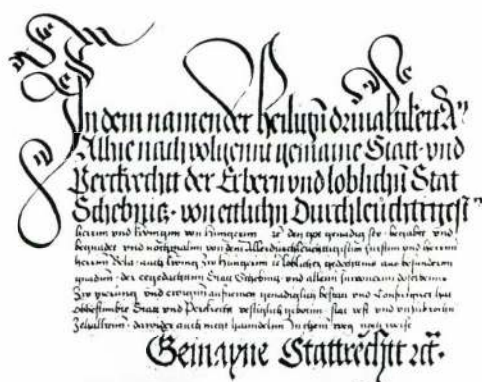 In dem namen der Heiligen drivaltikeit A
Alhie nach volgennt gemaine Statt und
Perckrecht der Erbern und loblichn Stat
Schebnitz von ettlichn Durchleuchtigist
herrn und Kronigen von Hungern den got genadig sey begabet und
begnadet und nochmaln von dem Allerdurchleuchtigisten fursten und herrn
herrn Bela auch konig zw Hungern loblicher gedechtnus aus besundern
gnaden der egedachten Statt Schebnitz und allen Inwonern doselbens
Zw und ewigem aufnemen genadiglich bestatt und Confirmirt hat
obbestimbte Stat und Perckrecht vestiglich stat vest und unzubrochn
Zehalltenn darwider auch nicht haundeln In chain weg noch weise
Gemayne Stattrechtt